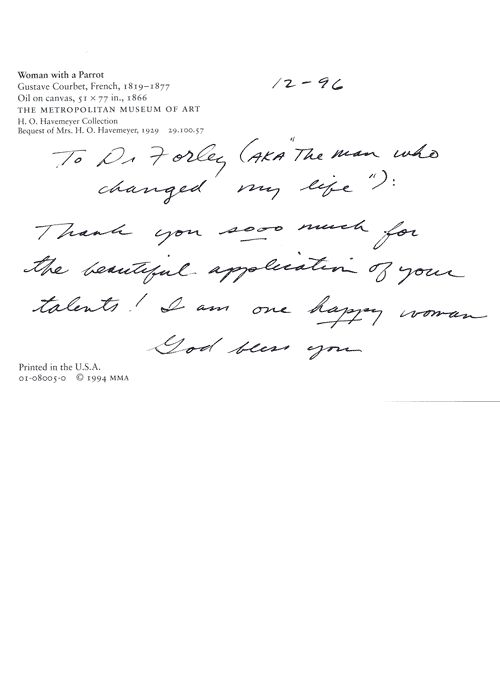 Woman with a Parrot
Gustave Courbet, French, 1819–1877
Oil on canvas, 51 × 77 in., 1866
THE METROPOLITAN MUSEUM OF ART
H. O. Havemeyer Collection
Bequest of Mrs. H. O. Havemeyer, 1929 29.100.57
12-96
To Dr Forley (AKA "The man who
changed my life"):
Thank you sooo much for
the beautiful application of your
talents! I am one happy woman
God bless you
Printed in the U.S.A.
01-08005-0 © 1994 MMA